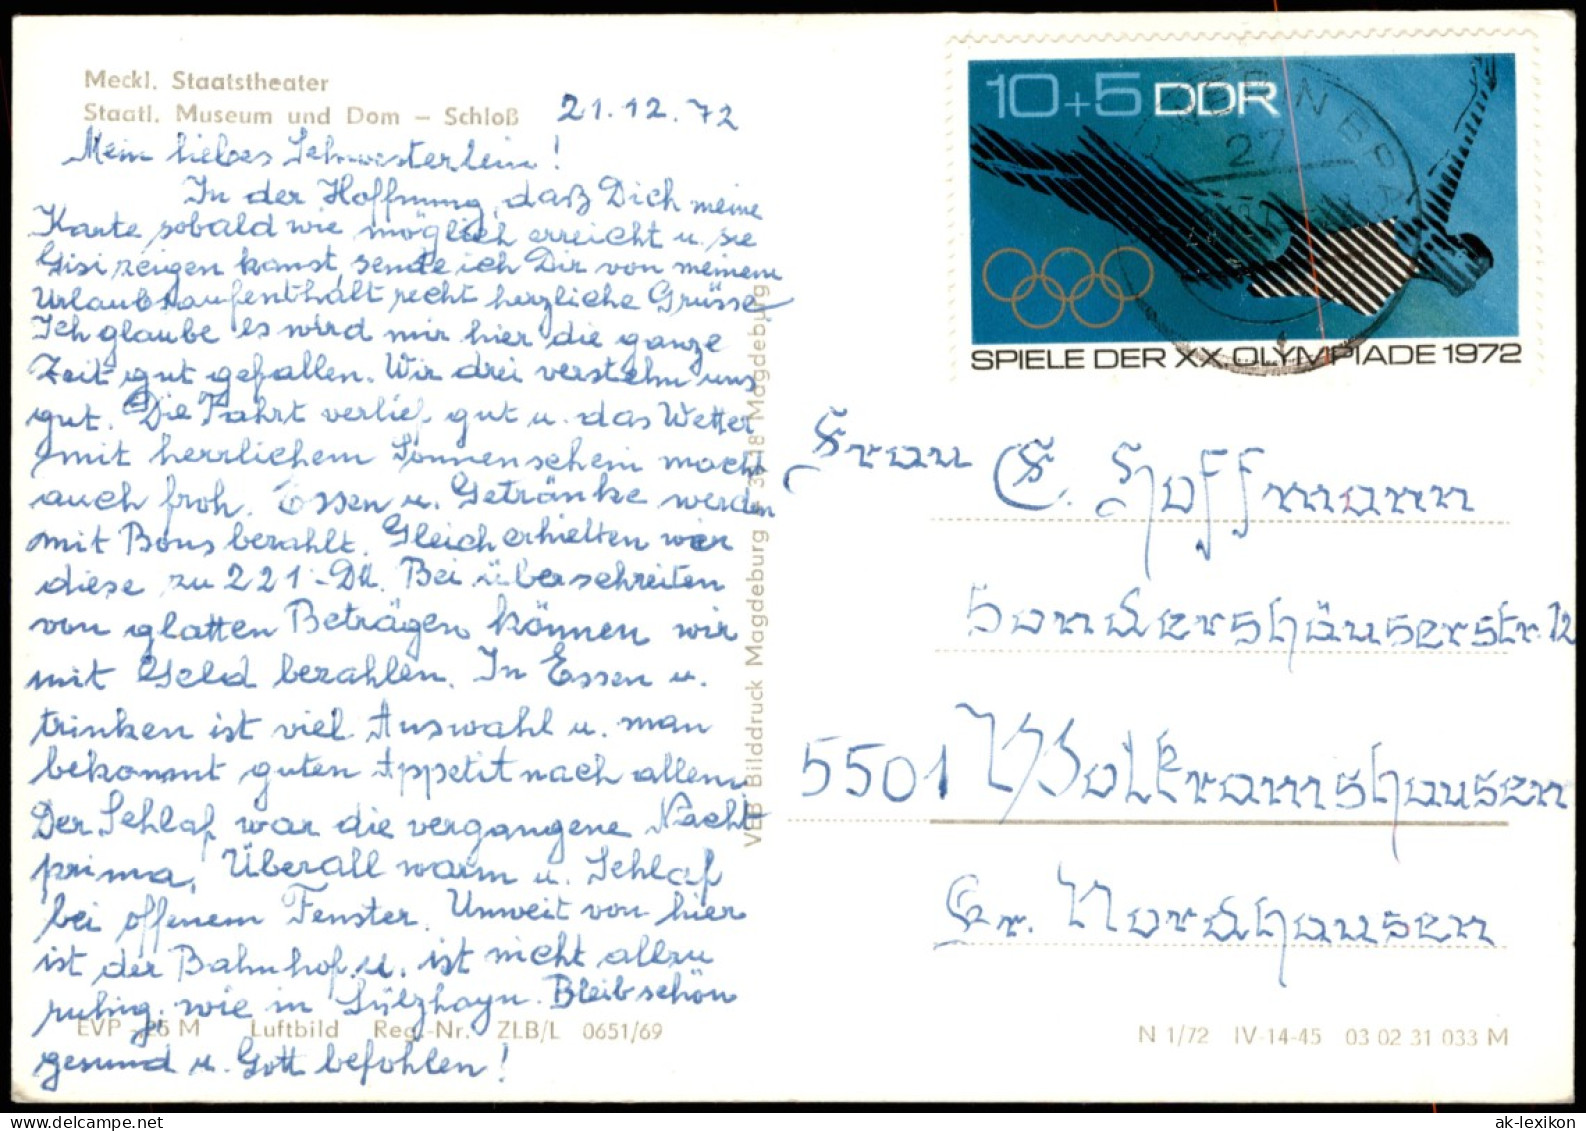 Meckl. Staatstheater
Staatl. Museum und Dom – Schloß
21.12.72
Mein liebes Schwesterlein!
In der Hoffnung, daß Dich meine
Karte sobald wie möglich erreicht u. sie
Gisi zeigen kanst, sende ich Dir von meinem
Urlaubsaufenthalt recht herzliche Grüsse
Ich glaube es wird mir hier die ganze
Zeit gut gefallen. Wir drei verstehn uns
gut. Die Fahrt verlief gut u. das Wetter
mit herrlichem Sonnenschein macht
auch froh. Essen u. Getränke werden
mit Bons bezahlt. Gleich erhielten wir
diese zu 221.-DM. Bei überschreiten
von glatten Beträgen können wir
mit Geld bezahlen. In Essen u.
trinken ist viel Auswahl u. man
bekommt guten Appetit nach allem
Der Schlaf war die vergangene Nacht
prima, Überall warm u. Schlaf
bei offenem Fenster. Unweit von hier
ist der Bahnhof u. ist nicht allzu
ruhig, wie in Sülzhayn. Bleib schön
gesund u. Gott befohlen!
EVP -,25 M Luftbild Reg.-Nr. ZLB/L 0651/69
VEB Bilddruck Magdeburg 3018 Magdeburg
10+5 DDR
27
SPIELE DER XX. OLYMPIADE 1972
Frau E. Hoffmann
Sondershäuserstr. 12
5501 Wolkramshausen
Kr. Nordhausen
N 1/72 IV-14-45 03 02 31 033 M
ak-lexikon